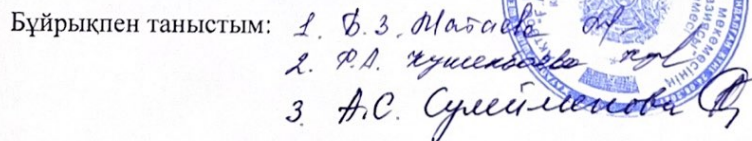 Бұйрықпен таныстым: 1. Б.З. Матаева
2. Р.А. Кушекбаева
3. А.С. Сулейменова